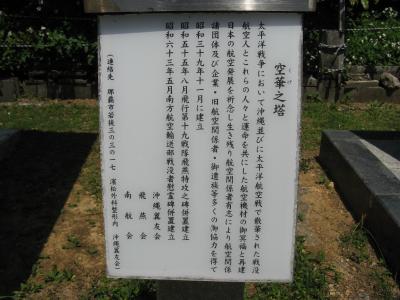 空華之塔
くうげ
太平洋戦争において沖縄並びに太平洋航空戦で散華された戦没
航空人とこれらの人々と運命を共にした航空機材の御冥福と再建
日本の航空発展を祈念し生き残り航空関係者有志により航空関係
諸団体及び企業・旧航空関係者・御遺族等多くの御協力を得て
昭和三十九年十一月に建立
昭和五十五年八月飛行第十九戦隊飛燕特攻之碑併置建立
昭和六十三年五月南方航空輸送部戦没者慰霊碑併置建立
沖縄翼友会
飛燕会
南航会
(連絡先 那覇市若狭三の三の一七 濱松外科整形内 沖縄翼友会)